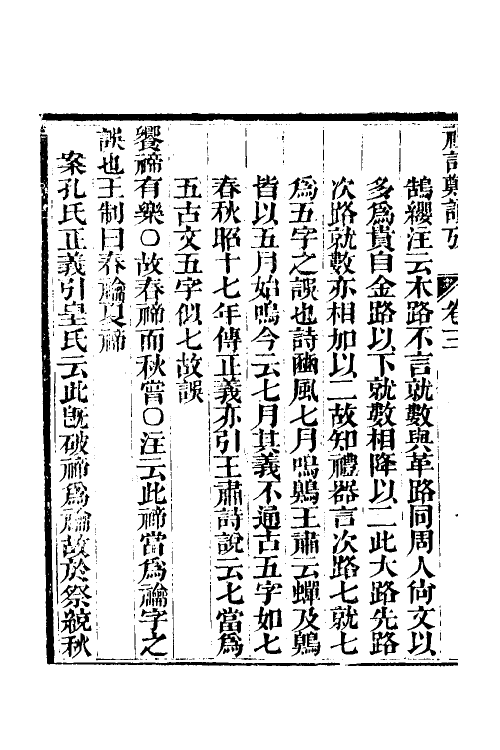 禮記鄭讀考 卷三
鵠纓注云木路不言就數與革路同周人尚文以
多爲貴自金路以下就數相降以二此大路先路
次路就數亦相加以二故知禮器言次路七就七
爲五字之誤也詩豳風七月鳴鵙王肅云蟬及鵙
皆以五月始鳴今云七月其義不通古五字如七
春秋昭十七年傳正義亦引王肅詩說云七當爲
五古文五字似七故誤
饗禘有樂〇故春禘而秋嘗〇注云此禘當爲禴字之
誤也王制曰春禴夏禘
案孔氏正義引皇氏云此旣破禘爲禴故於祭統秋